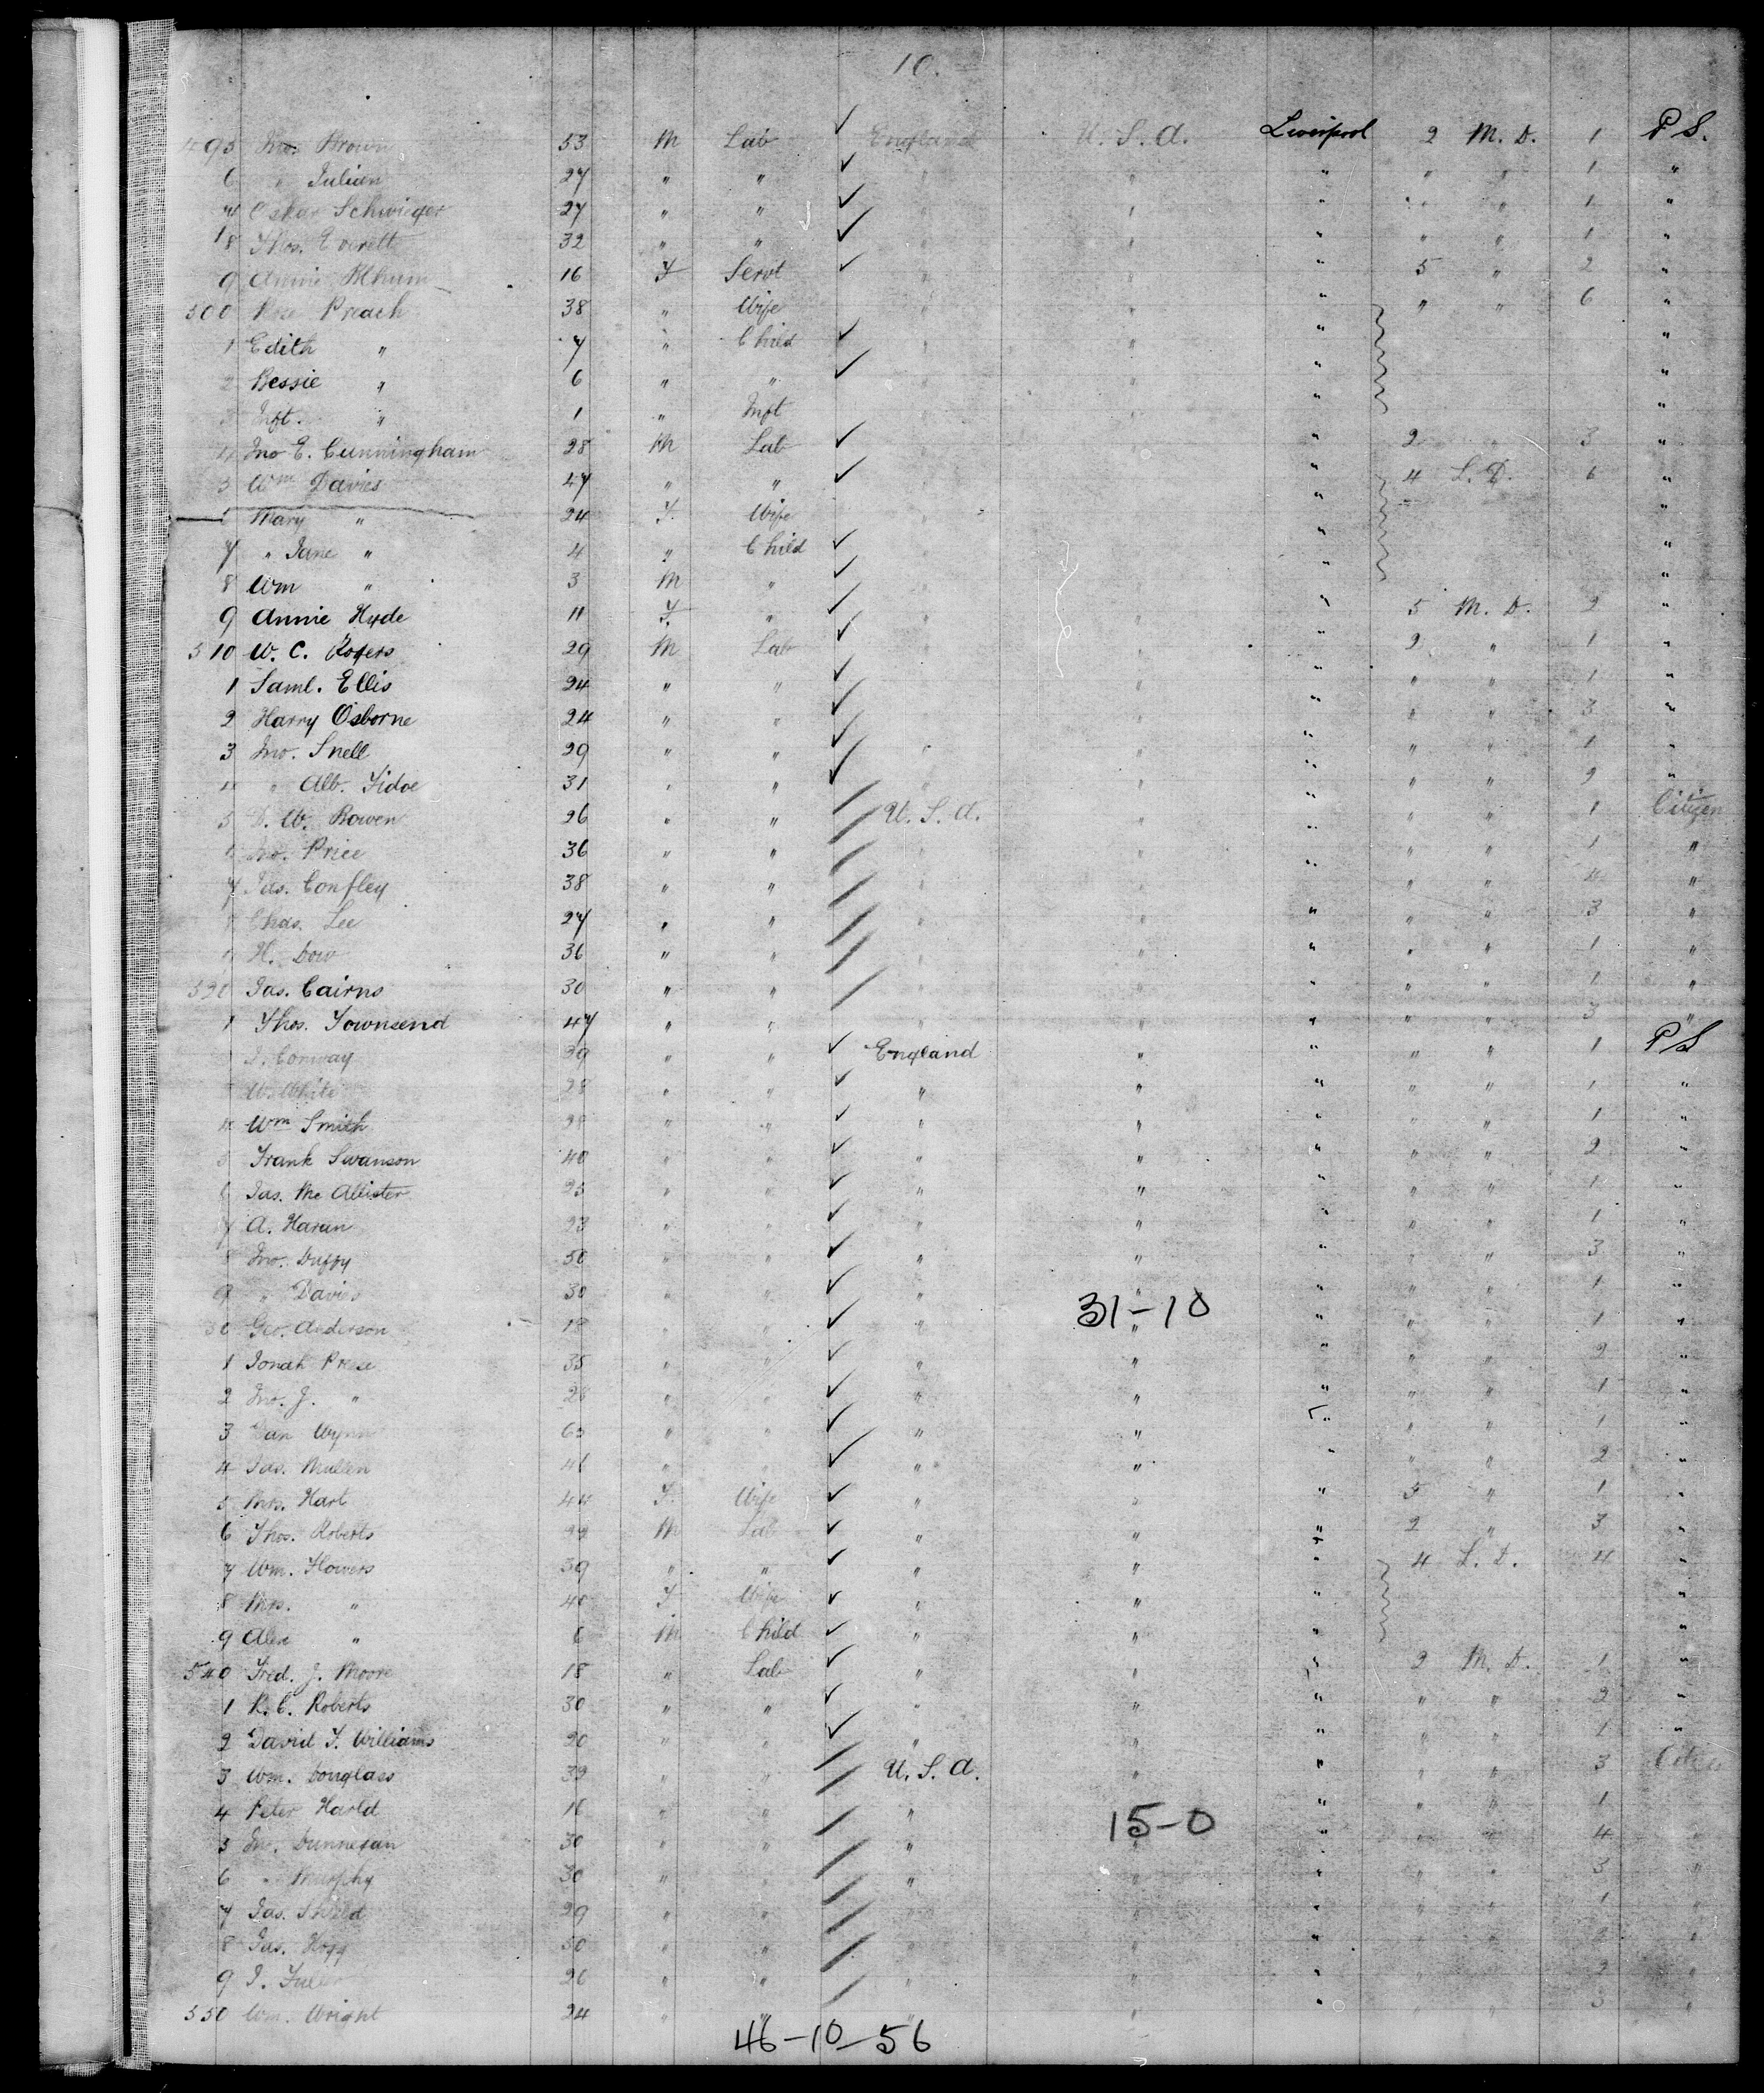 10.
495 Jno. Brown 53 M Lab ✓ England U. S. A. Liverpool 2 M. D. 1 P S.
6 " Julian 27 " " ✓ " " " " " 1 "
7 Oskar Schwieger 27 " " ✓ " " " " " 1 "
8 Thos. Everett 32 " " ✓ " " " " " 1 "
9 Annie 16 F Servt ✓ " " " 5 " 2 "
500 Preach 38 " Wife " " " " " 6 "
1 Edith " 7 " Child ✓ " " " "
2 Bessie " 6 " " ✓ " " " "
Inft. " 1 " Inft " " " "
4 Jno E. Cunningham 28 M Lab ✓ " 2 " 3 "
5 Wm Davies 47 " " ✓ " 4 L. D. 6 "
Mary " 24 F. Wife " " "
7 " Jane " 4 " Child ✓ " "
8 Wm " 3 M " ✓ " "
9 Annie Hyde 11 F. " ✓ " " " 5 M. D. 2 "
510 W. C. Rogers 29 M Lab ✓ " " " 2 " 1 "
1 Saml. Ellis 24 " " ✓ " " " " " 1 "
2 Harry Osborne 24 " " ✓ " " " " " 3 "
3 Jno. Snell 29 " " ✓ " " " " " 1 "
4 " Alb. Fidoe 31 " " ✓ " " " " " 2 "
5 D. W. Bowen 26 " " / U. S. A. " " " " 1 Citizen
Jno. Price 36 " " / " " " " " 1 "
7 Jas. Confley 38 " " / " " " " " 4 "
Chas. Lee 27 " " / " " " " " 3 "
H. Dow 36 " " / " " " " " 1 "
520 Jas. Cairns 30 " " / " " " " " 1 "
1 Thos. Townsend 47 " " / " " " " " 3 "
J. Conway 39 " " ✓ England " " " " 1 P S
W. White 28 " " ✓ " " " " " 1 "
4 Wm Smith " " ✓ " " " " " 1 "
5 Frank Swanson 40 " " ✓ " " " " " 2 "
Jas. Mc Allister 25 " " ✓ " " " " " 1 "
7 A. Haran 23 " " ✓ " " " " " 1 "
8 Jno. Duffy 50 " " ✓ " " " " " 3 "
9 " Davies 30 " " ✓ " " " " " 1 "
31-10
30 Geo. Anderson " " ✓ " " " " " 1 "
1 Jonah 35 " " ✓ " " " " " 2 "
2 Jno. J. " " " ✓ " " " " " 1 "
3 Dan Wynn " " ✓ " " " " " 1 "
4 Jas. Mullen " " ✓ " " " " " 2 "
5 Mrs. Hart 44 F. Wife ✓ " " " 5 " 1 "
6 Thos. Roberts M Lab ✓ " " " 2 " 3 "
7 Wm. Flowers 39 " " ✓ " " " 4 L. D. 4 "
8 Mrs. " 40 F Wife ✓ " " " "
9 Alex " 6 M Child ✓ " " " "
540 Fred. J. Moore 18 " Lab ✓ " " " 2 M. D. 1 "
1 R. C. Roberts 30 " " ✓ " " " " " 2 "
2 David T. Williams 20 " " ✓ " " " " " 1 "
3 Wm. Douglass 39 " " / U. S. A. " " " " 3 Citizen
4 Peter Harld " " / " " " " " 1
15-0
5 Jno. Dunnegan 30 " " / " " " " " 4 "
6 " Murphy 30 " " / " " " " " 3 "
7 Jas. Shield 29 " " / " " " " " 1 "
8 Jas. Hogg 50 " " / " " " " " "
9 J. 26 " " / " " " " " 2 "
550 Wm. Wright 24 " " / " " " " " 3 "
46-10-56